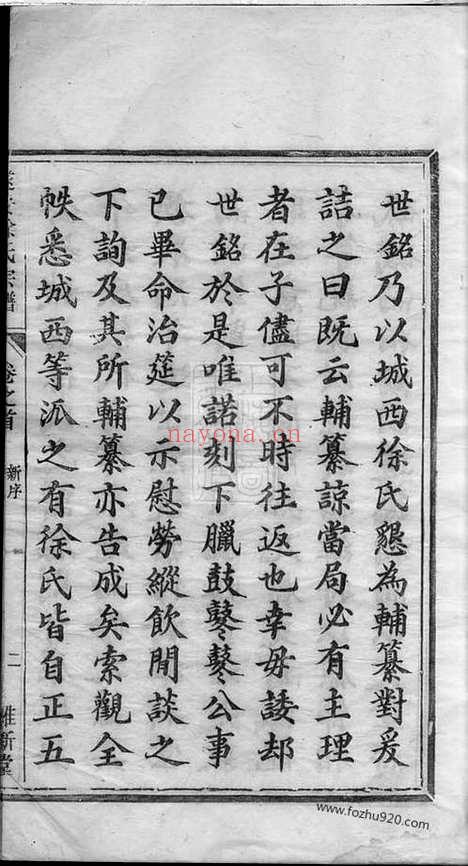 世銘乃以城西徐氏懇為輔纂對爰
詰之曰既云輔纂諒當局必有主理
者在子儘可不時往返也幸毋諉却
世銘於是唯諾刻下臘鼓鼕鼕公事
已畢命治筵以示慰勞縱飲閒談之
下詢及其所輔纂亦告成矣索觀全
帙悉城西等派之有徐氏皆自正五
徐氏宗譜
卷之首
新序
二
維新堂
nayona.cn
www.fozhu920.com